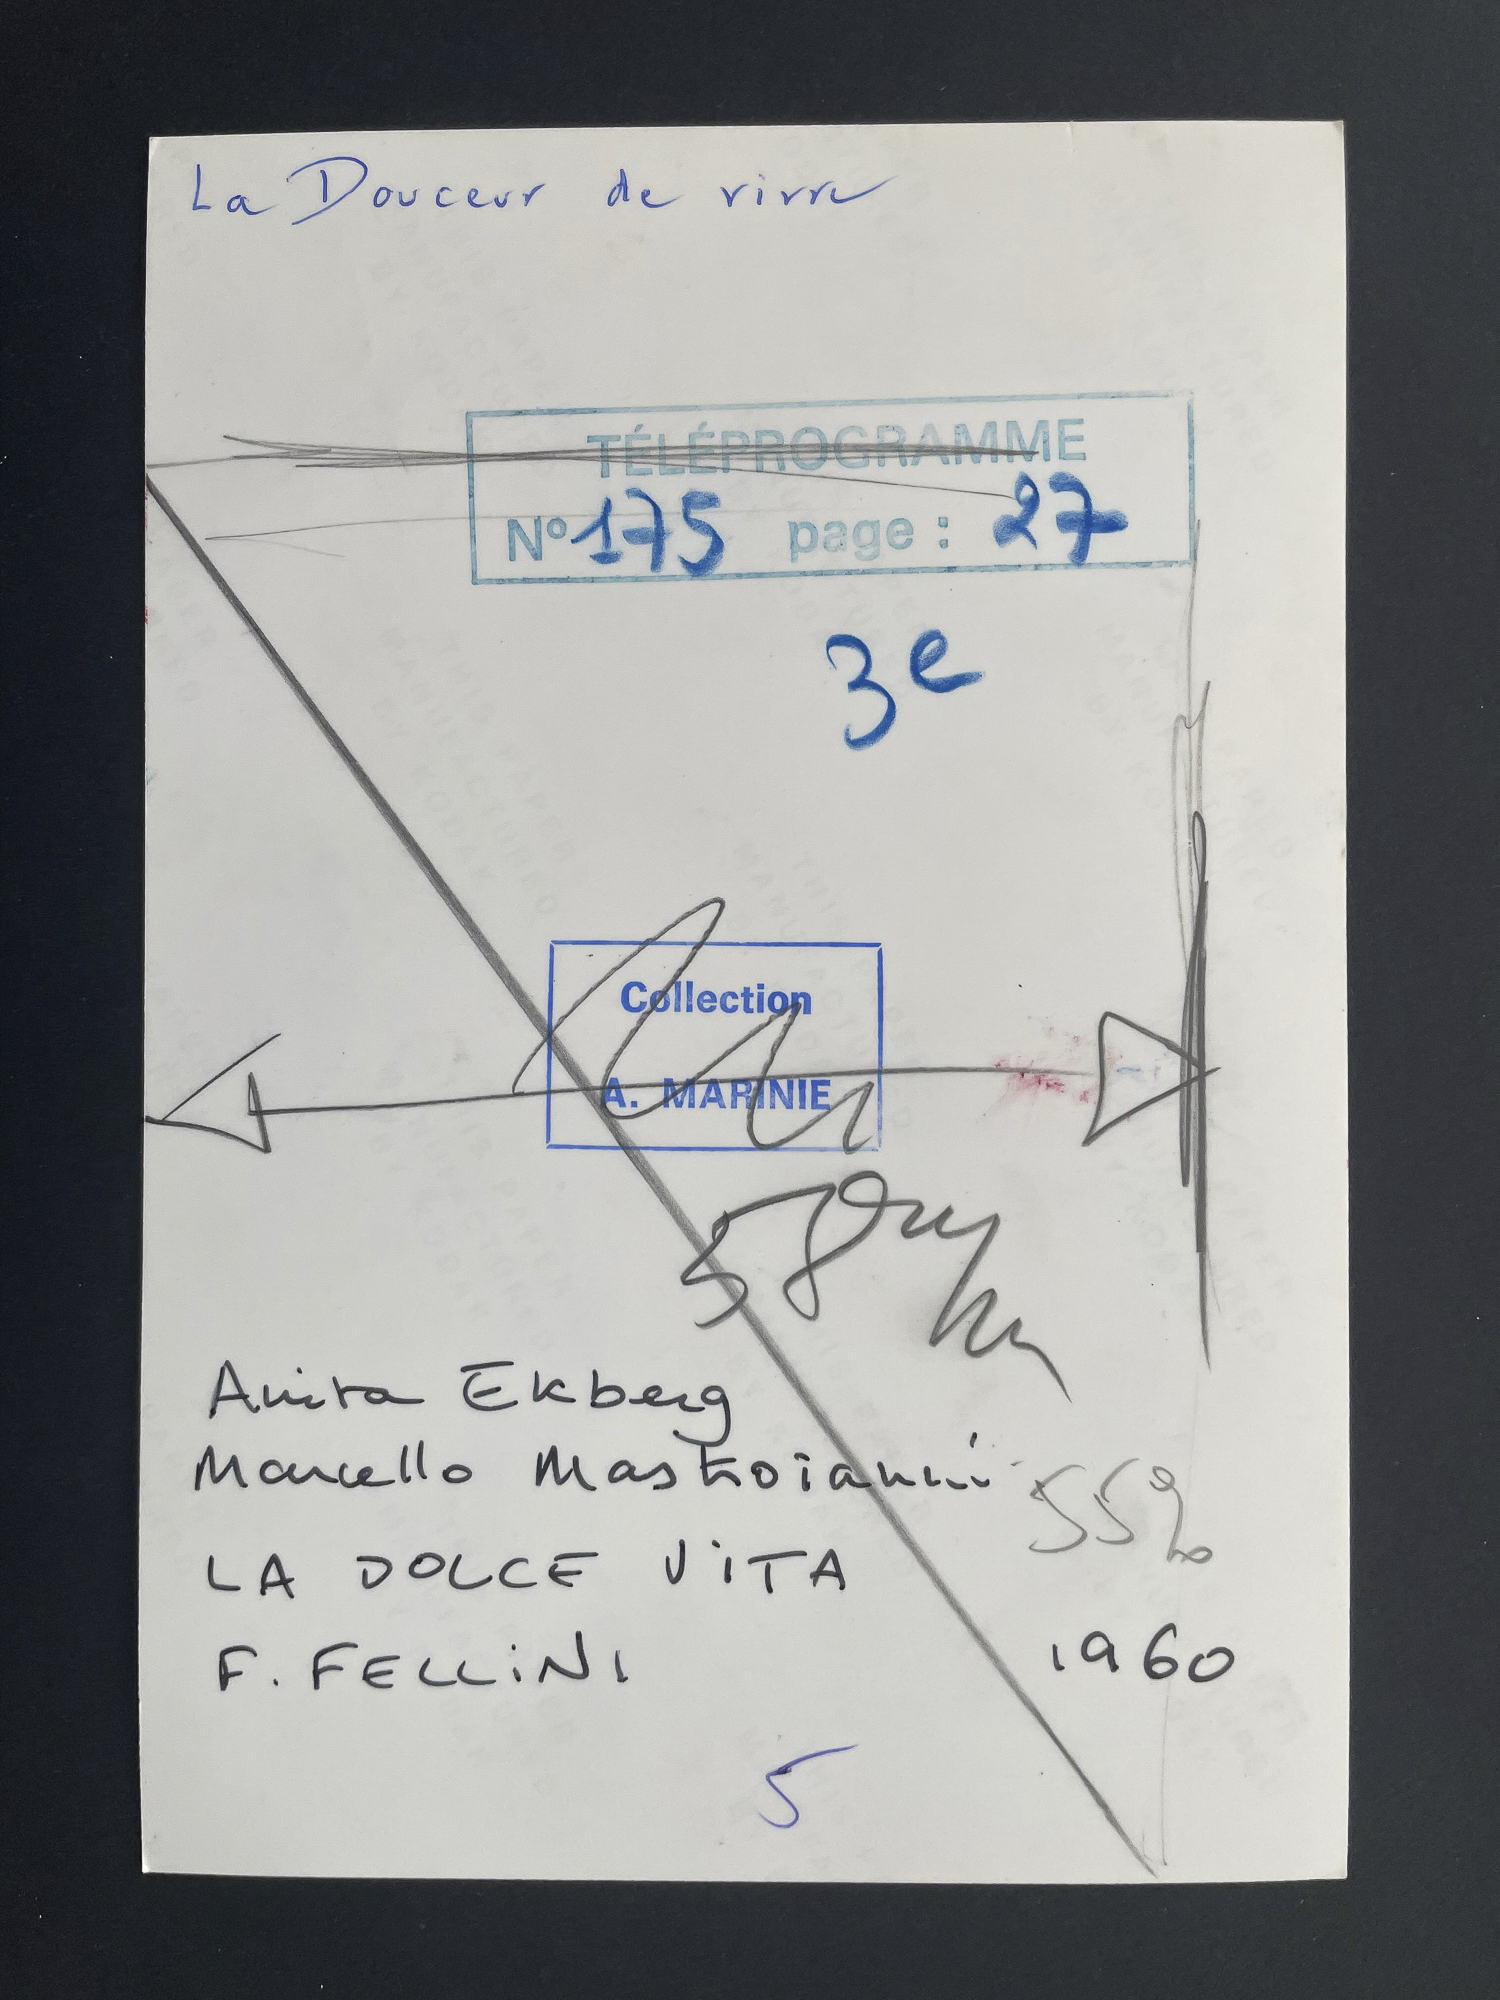 La Douceur de vivre
TÉLÉPROGRAMME
N° 175 page : 27
3e
Collection
A. MARINIE
Anita Ekberg
Marcello Mastroianni
LA DOLCE ViTA
F. FELLiNi
1960
5